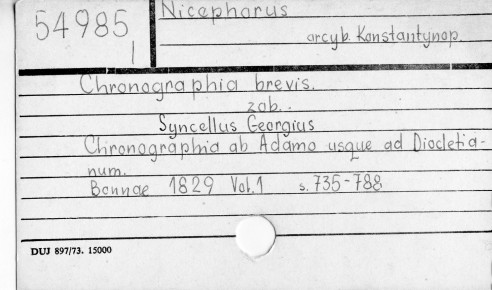 54985
I
Nicephorus
arcyb. Konstantynop.
Chronographia brevis.
zob.
Syncellus Georgius
Chronographia ab Adamo usque ad Diocletia-
num.
Bonnae 1829 Vol.1 s. 735-788
DUJ 897/73. 15000